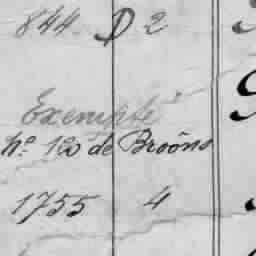 844 D 2
Exempte
nº 10 de Broôns
1755 4